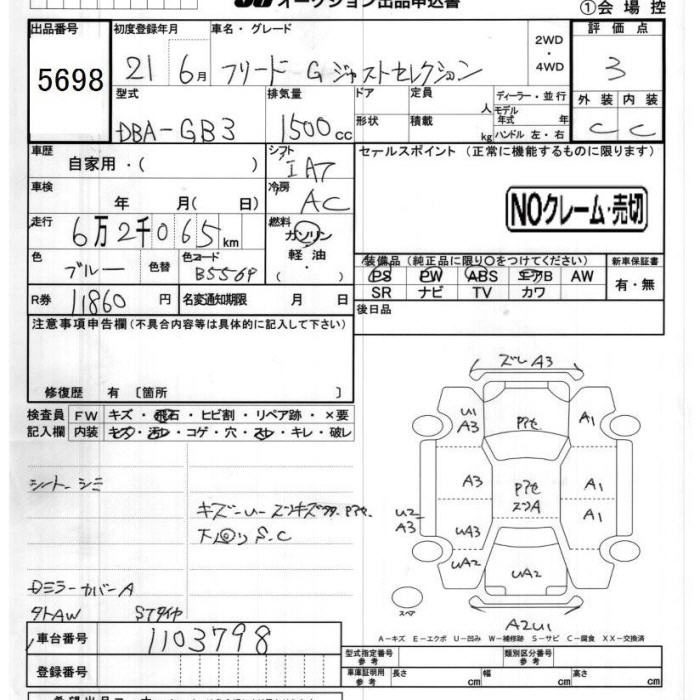 オークション出品申込書
①会場控
出品番号 5698
初度登録年月 21 6月
車名・グレード フリード G ジャストセレクション
2WD・4WD
評価点 3
外装 C 内装 C
型式 DBA-GB3
排気量 1500cc
ドア 定員 人
形状 積載 kg
ディーラー・並行
モデル年式 年式
ハンドル 左・右
車歴 自家用・( )
シフト IAT
セールスポイント (正常に機能するものに限ります)
車検 年 月( 日)
冷房 AC
NOクレーム・売切
走行 6万2千065km
燃料 ガソリン 軽油・( )
色 ブルー 色替
色コード B5569
装備品(純正品に限り○をつけてください)
新車保証書 有・無
PS PW ABS エアB AW
SR ナビ TV カワ
R券 11860円
名変通知期限 月 日
後日品
注意事項申告欄(不具合内容等は具体的に記入して下さい)
修復歴 有 〔箇所 〕
検査員記入欄
FW キズ・飛石・ヒビ割・リペア跡・×要
内装 キズ・汚レ・コゲ・穴・スレ・キレ・破レ
ズレA3
U1 A3
Pアセ
A1
A3
Pアセ
A1
シート シミ
U2 A3
A1
下回リ S.C
UA3
UA2
UA2
Dミラーカバー A
STタイヤ
スペア
A2U1
A-キズ E-エクボ U-凹み W-補修跡 S-サビ C-腐食 XX-交換済
車台番号 1103798
登録番号
型式指定番号 参考
類別区分番号 参考
車庫証明用 参考 長さ cm 幅 cm 高さ cm